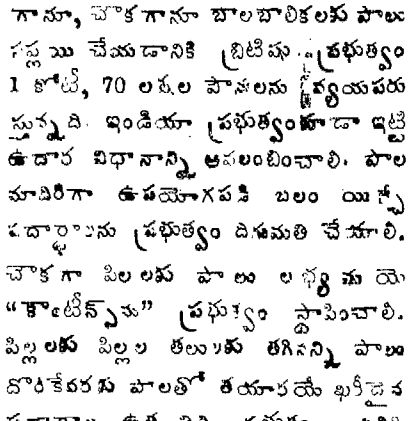 గానూ, చౌకగానూ బాలబాలికలకు పాలు
సప్లయి చేయడానికి బ్రిటిషు ప్రభుత్వం
1 కోటి, 70 లక్షల పౌనులను వ్యయపరు
స్తున్నది. ఇండియా ప్రభుత్వంకూడా ఇట్టి
ఉదార విధానాన్ని అవలంబించాలి. పాల
మాదిరిగా ఉపయోగపడి బలం యిచ్చే
పదార్థాలను ప్రభుత్వం దిగుమతి చేయాలి.
చౌకగా పిల్లలకు పాలు లభ్యమయ్యే
“కాంటీన్స్‌ను” ప్రభుత్వం స్థాపించాలి.
పిల్లలకు పిల్లల తల్లులకు తగినన్ని పాలు
దొరికేవరకు పాలతో తయారయే ఖరీదైన